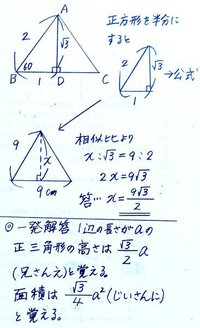 A
2
√3
60
B
1
D
C
正方形を半分に
すると
2
√3
1
→公式
9
x
9cm
相似比より
x:√3=9:2
2x=9√3
答…x=9√3/2
◎一発解答 1辺の長さがaの
正三角形の高さは√3/2 a
(兄さんえ)と覚える。
面積は√3/4 a²(じいさんに)
と覚える。